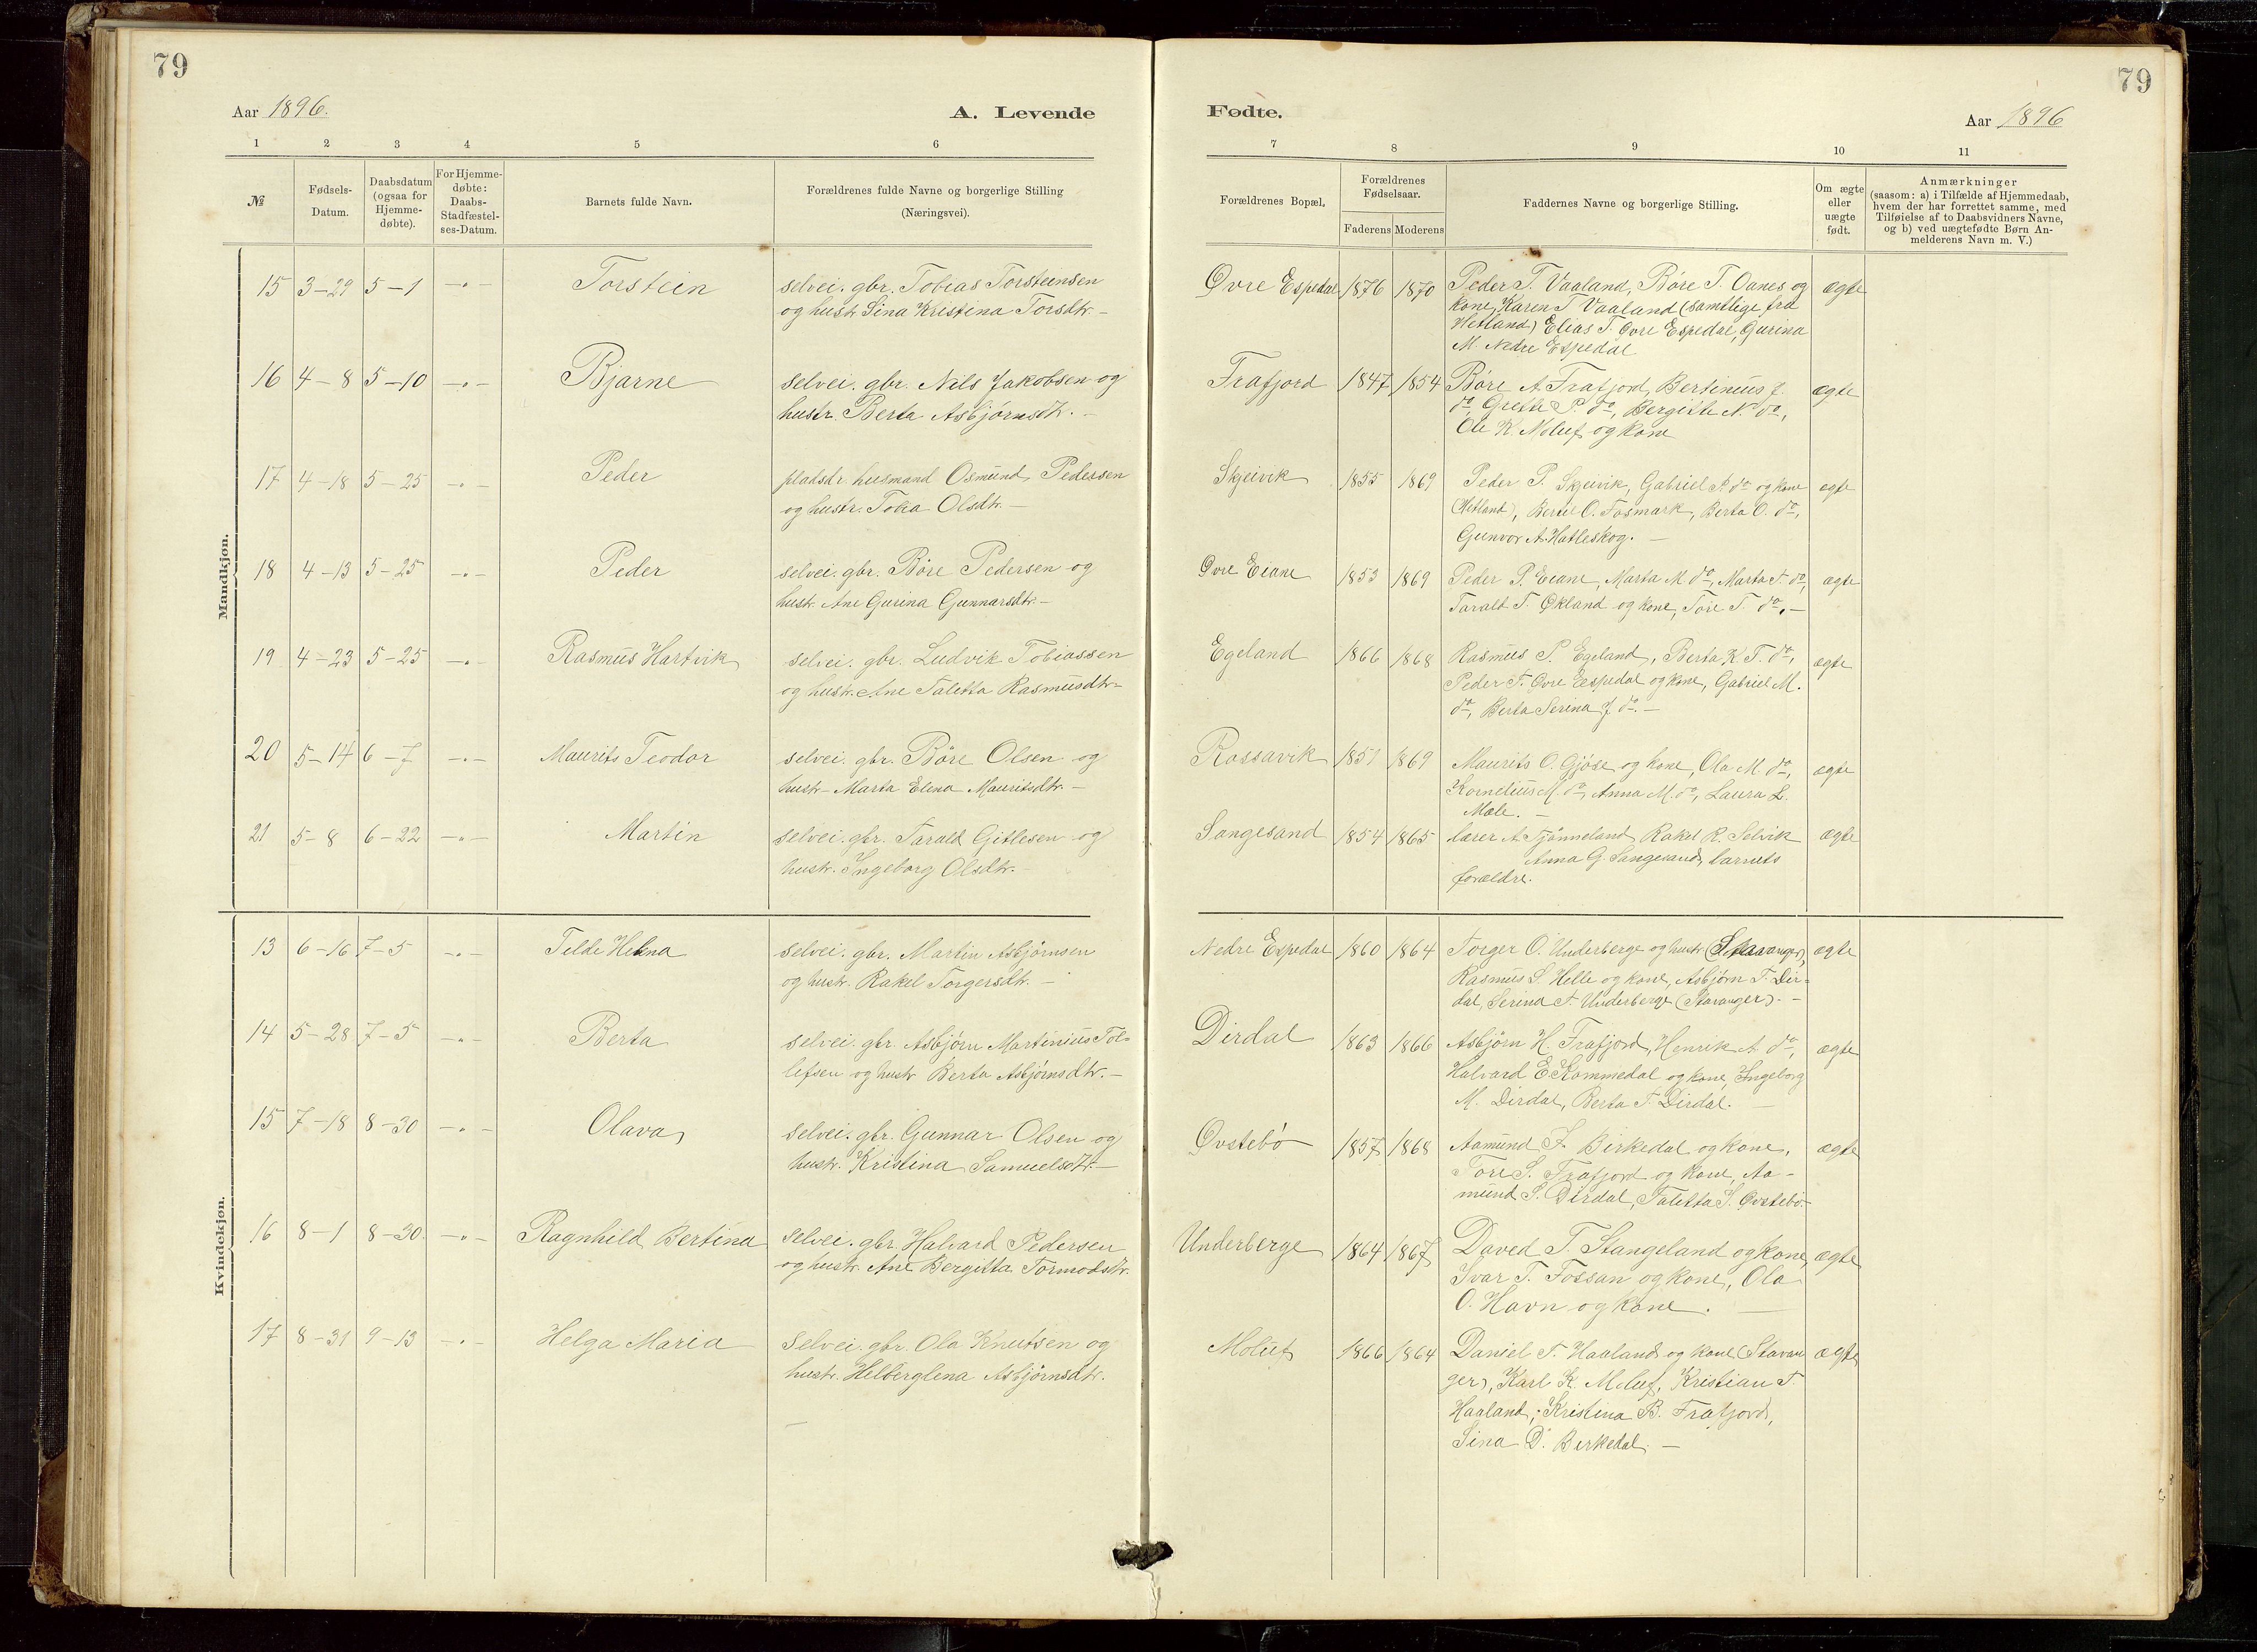 79
79
Aar 1896.
A. Levende
Fødte.
Aar 1896
1 2 3 4 5 6
7 8 9 10 11
№
Fødsels-
Datum.
Daabsdatum
(ogsaa for
Hjemme-
døbte).
For Hjemme-
døbte:
Daabs-
Stadfæstel-
ses-Datum.
Barnets fulde Navn.
Forældrenes fulde Navne og borgerlige Stilling
(Næringsvei).
Forældrenes Bopæl.
Forældrenes
Fødselsaar.
Faderens Moderens
Faddernes Navne og borgerlige Stilling.
Om ægte
eller
uægte
født.
Anmærkninger
(saasom: a) i Tilfælde af Hjemmedaab,
hvem der har forrettet samme, med
Tilføielse af to Daabsvidners Navne,
og b) ved uægtefødte Børn An-
melderens Navn m. V.)
Mandkjøn.
15 3-29 5-1 -"- Torstein
selvei. gbr. Tobias Torsteinsen
og hustr. Sina Kristina Torsdtr. -
Øvre Espedal 1876 1870
Peder T. Vaaland, Børe T. Oanes og
kone, Karen T. Vaaland (samtlige fra
Hetland) Elias T. Øvre Espedal, Gurina
M. Nedre Espedal
ægte
16 4-8 5-10 -"- Bjarne
selvei. gbr. Nils Jakobsen og
hustr. Berta Asbjørnsdtr. -
Frafjord 1847 1854
Børe A. Frafjord, Bertinius J.
do, Grette P. do, Bergitte N. do,
Ole K. Moluf og kone
ægte
17 4-18 5-25 -"- Peder
pladsdr. husmand Osmund Pedersen
og hustr. Tolia Olsdtr. -
Skjeivik 1855 1869
Peder P. Skjeivik, Gabriel P. do og kone
(Hetland), Bertil O. Fosmark, Berta O. do,
Gunvor A. Hatleskog. -
ægte
18 4-13 5-25 -"- Peder
selvei. gbr. Børe Pedersen og
hustr. Ane Gurina Gunnarsdtr. -
Øvre Eiane 1853 1869
Peder P. Eiane, Marta M. do, Marta T. do,
Tarald T. Økland og kone, Tore T. do. -
ægte
19 4-23 5-25 -"- Rasmus Hartvik
selvei. gbr. Ludvik Tobiassen
og hustr. Ane Taletta Rasmusdtr-
Egeland 1866 1868
Rasmus P. Egeland, Berta K. T. do,
Peder T. Øvre Espedal og kone, Gabriel M.
do, Berta Serina J. do. -
ægte
20 5-14 6-7 -"- Maurits Teodor
selvei. gbr. Børe Olsen og
hustr- Marta Elena Mauritsdtr. -
Rossavik 1851 1869
Maurits O. Gjøse og kone, Ola M. do,
Kornelius M. do, Anna M. do, Laura L.
Mæle. -
ægte
21 5-8 6-22 -"- Martin
selvei. gbr. Tarald Gitlesen og
hustr. Ingeborg Olsdtr. -
Sangesand 1854 1865
lærer A. Tjønneland, Rakel R. Selvik
Anna G. Sangesand, barnets
forældre.
ægte
Kvindekjøn.
13 6-16 7-5 -"- Telde Helena
selvei. gbr. Martin Asbjørnsen
og hustr. Rakel Torgersdtr. -
Nedre Espedal 1860 1864
Torger O. Underberge og hustr. (Stavanger),
Rasmus S. Helle og kone, Asbjørn T. Dir-
dal, Serina T. Underberge (Stavanger). -
ægte
14 5-28 7-5 -"- Berta
selvei. gbr. Asbjørn Martinius Tol-
lefsen og hustr. Berta Asbjørnsdtr. -
Dirdal 1863 1866
Asbjørn H. Frafjord, Henrik A. do,
Halvard E. Kommedal og kone, Ingeborg
M. Dirdal, Berta T. Dirdal. -
ægte
15 7-18 8-30 -"- Olava
selvei. gbr. Gunnar Olsen og
hustr. Kristina Samuelsdtr. -
Øvstebø 1857 1868
Aamund J. Birkedal og kone,
Tore S. Frafjord og kone, Aa-
mund S. Dirdal, Taletta S. Øvstebø. -
ægte
16 8-1 8-30 -"- Ragnhild Bertina
selvei. gbr. Halvard Pedersen
og hustr. Ane Bergitta Tormodsdtr.
Underberge 1864 1867
David T. Stangeland og kone,
Ivar T. Fossan og kone, Ola
O. Havn og kone. -
ægte
17 8-31 9-13 -"- Helga Maria
Selvei. gbr. Ola Knutsen og
hustr. Helberglena Asbjørnsdtr.
-
Moluf 1866 1864
Daniel T. Haaland og kone (Stavan
ger), Karl K. Moluf, Kristian T.
Haaland, Kristina B. Frafjord,
Sina D. Birkedal. -
ægte